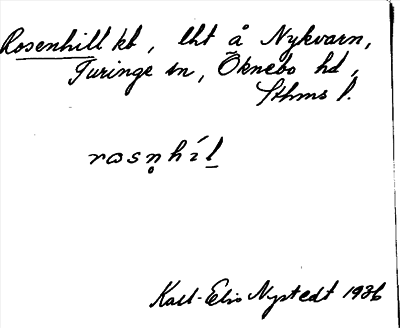 Rosenhill kt, lht å Nykvarn,
Turinge sn, Öknebo hd,
Sthms l.
rɷsn̥híl̲
Karl-Elis Nystedt 1936